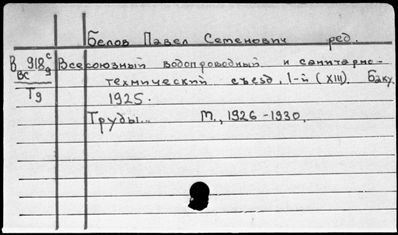 Белов Павел Семенович ред.
В 918 с/9 Всесоюзный водопроводный и санитарно-
Вс техническій съезд. I-й (XIII). Баку.
Т9 1925.
Труды... М., 1926-1930.